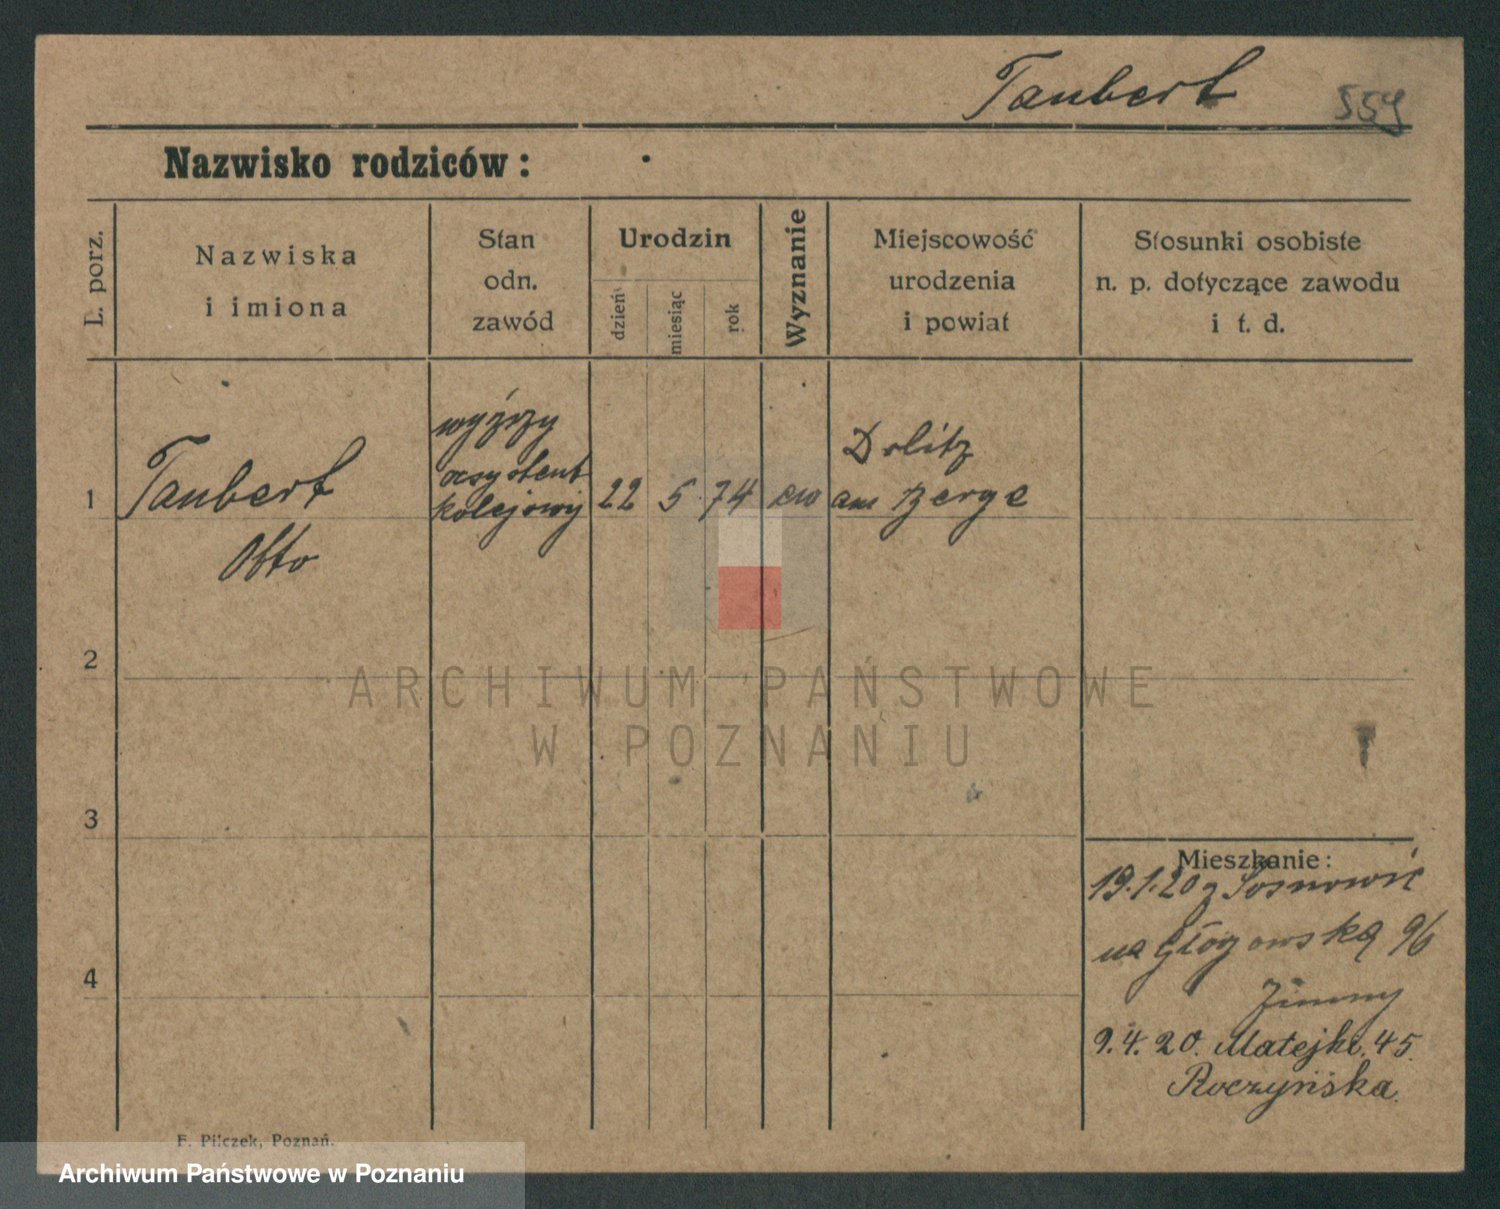 Taubert 559
Nazwisko rodziców:
L. porz.
Nazwiska
i imiona
Stan
odn.
zawód
Urodzin
dzień
miesiąc
rok
Wyznanie
Miejscowość
urodzenia
i powiat
Stosunki osobiste
n. p. dotyczące zawodu
i t. d.
1
Taubert
Otto
wyższy
asystent
kolejowy
22 5 74 ew
Dolitz
am Berge
2
3
4
Mieszkanie:
19.1.20 z Sosnowic
na Głogowską 96
9.4.20. Matejki 45.
Roczyńska.
F. Pilczek, Poznań.
ARCHIWUM PAŃSTWOWE
W POZNANIU
Archiwum Państwowe w Poznaniu